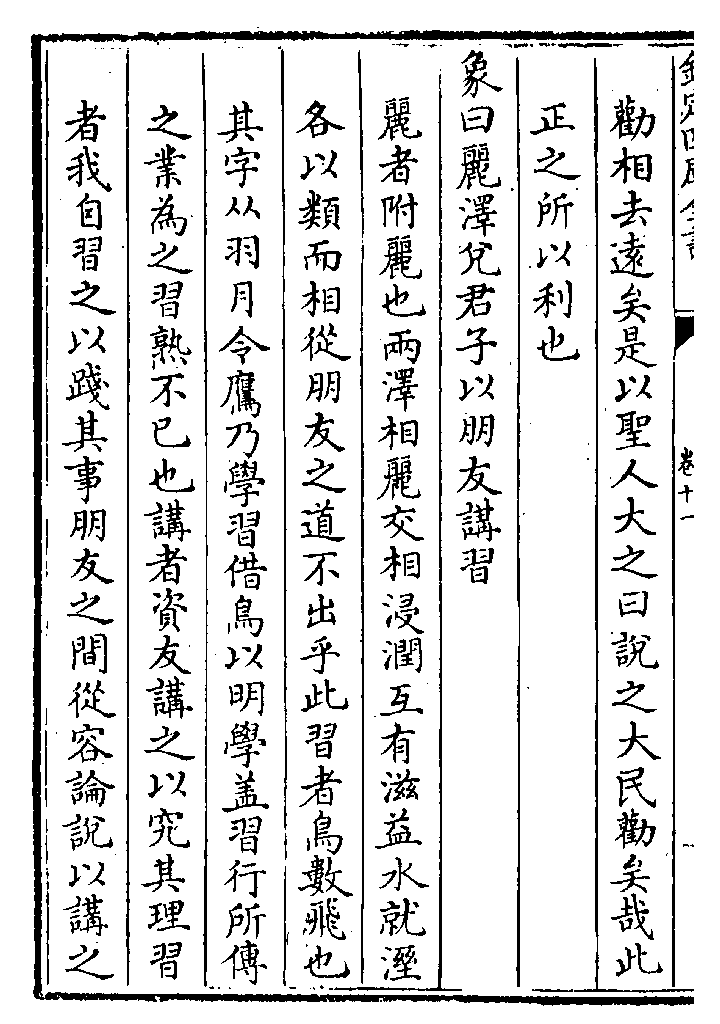 欽定四庫全書
卷十一
勸相去逺矣是以聖人大之曰説之大民勸矣哉此
正之所以利也
象曰麗澤兌君子以朋友講習
麗者附麗也兩澤相麗交相浸潤互有滋益水就溼
各以類而相從朋友之道不出乎此習者鳥數飛也
其字从羽月令鷹乃學習借鳥以明學盖習行所傳
之業為之習熟不已也講者資友講之以究其理習
者我自習之以踐其事朋友之間從容論說以講之